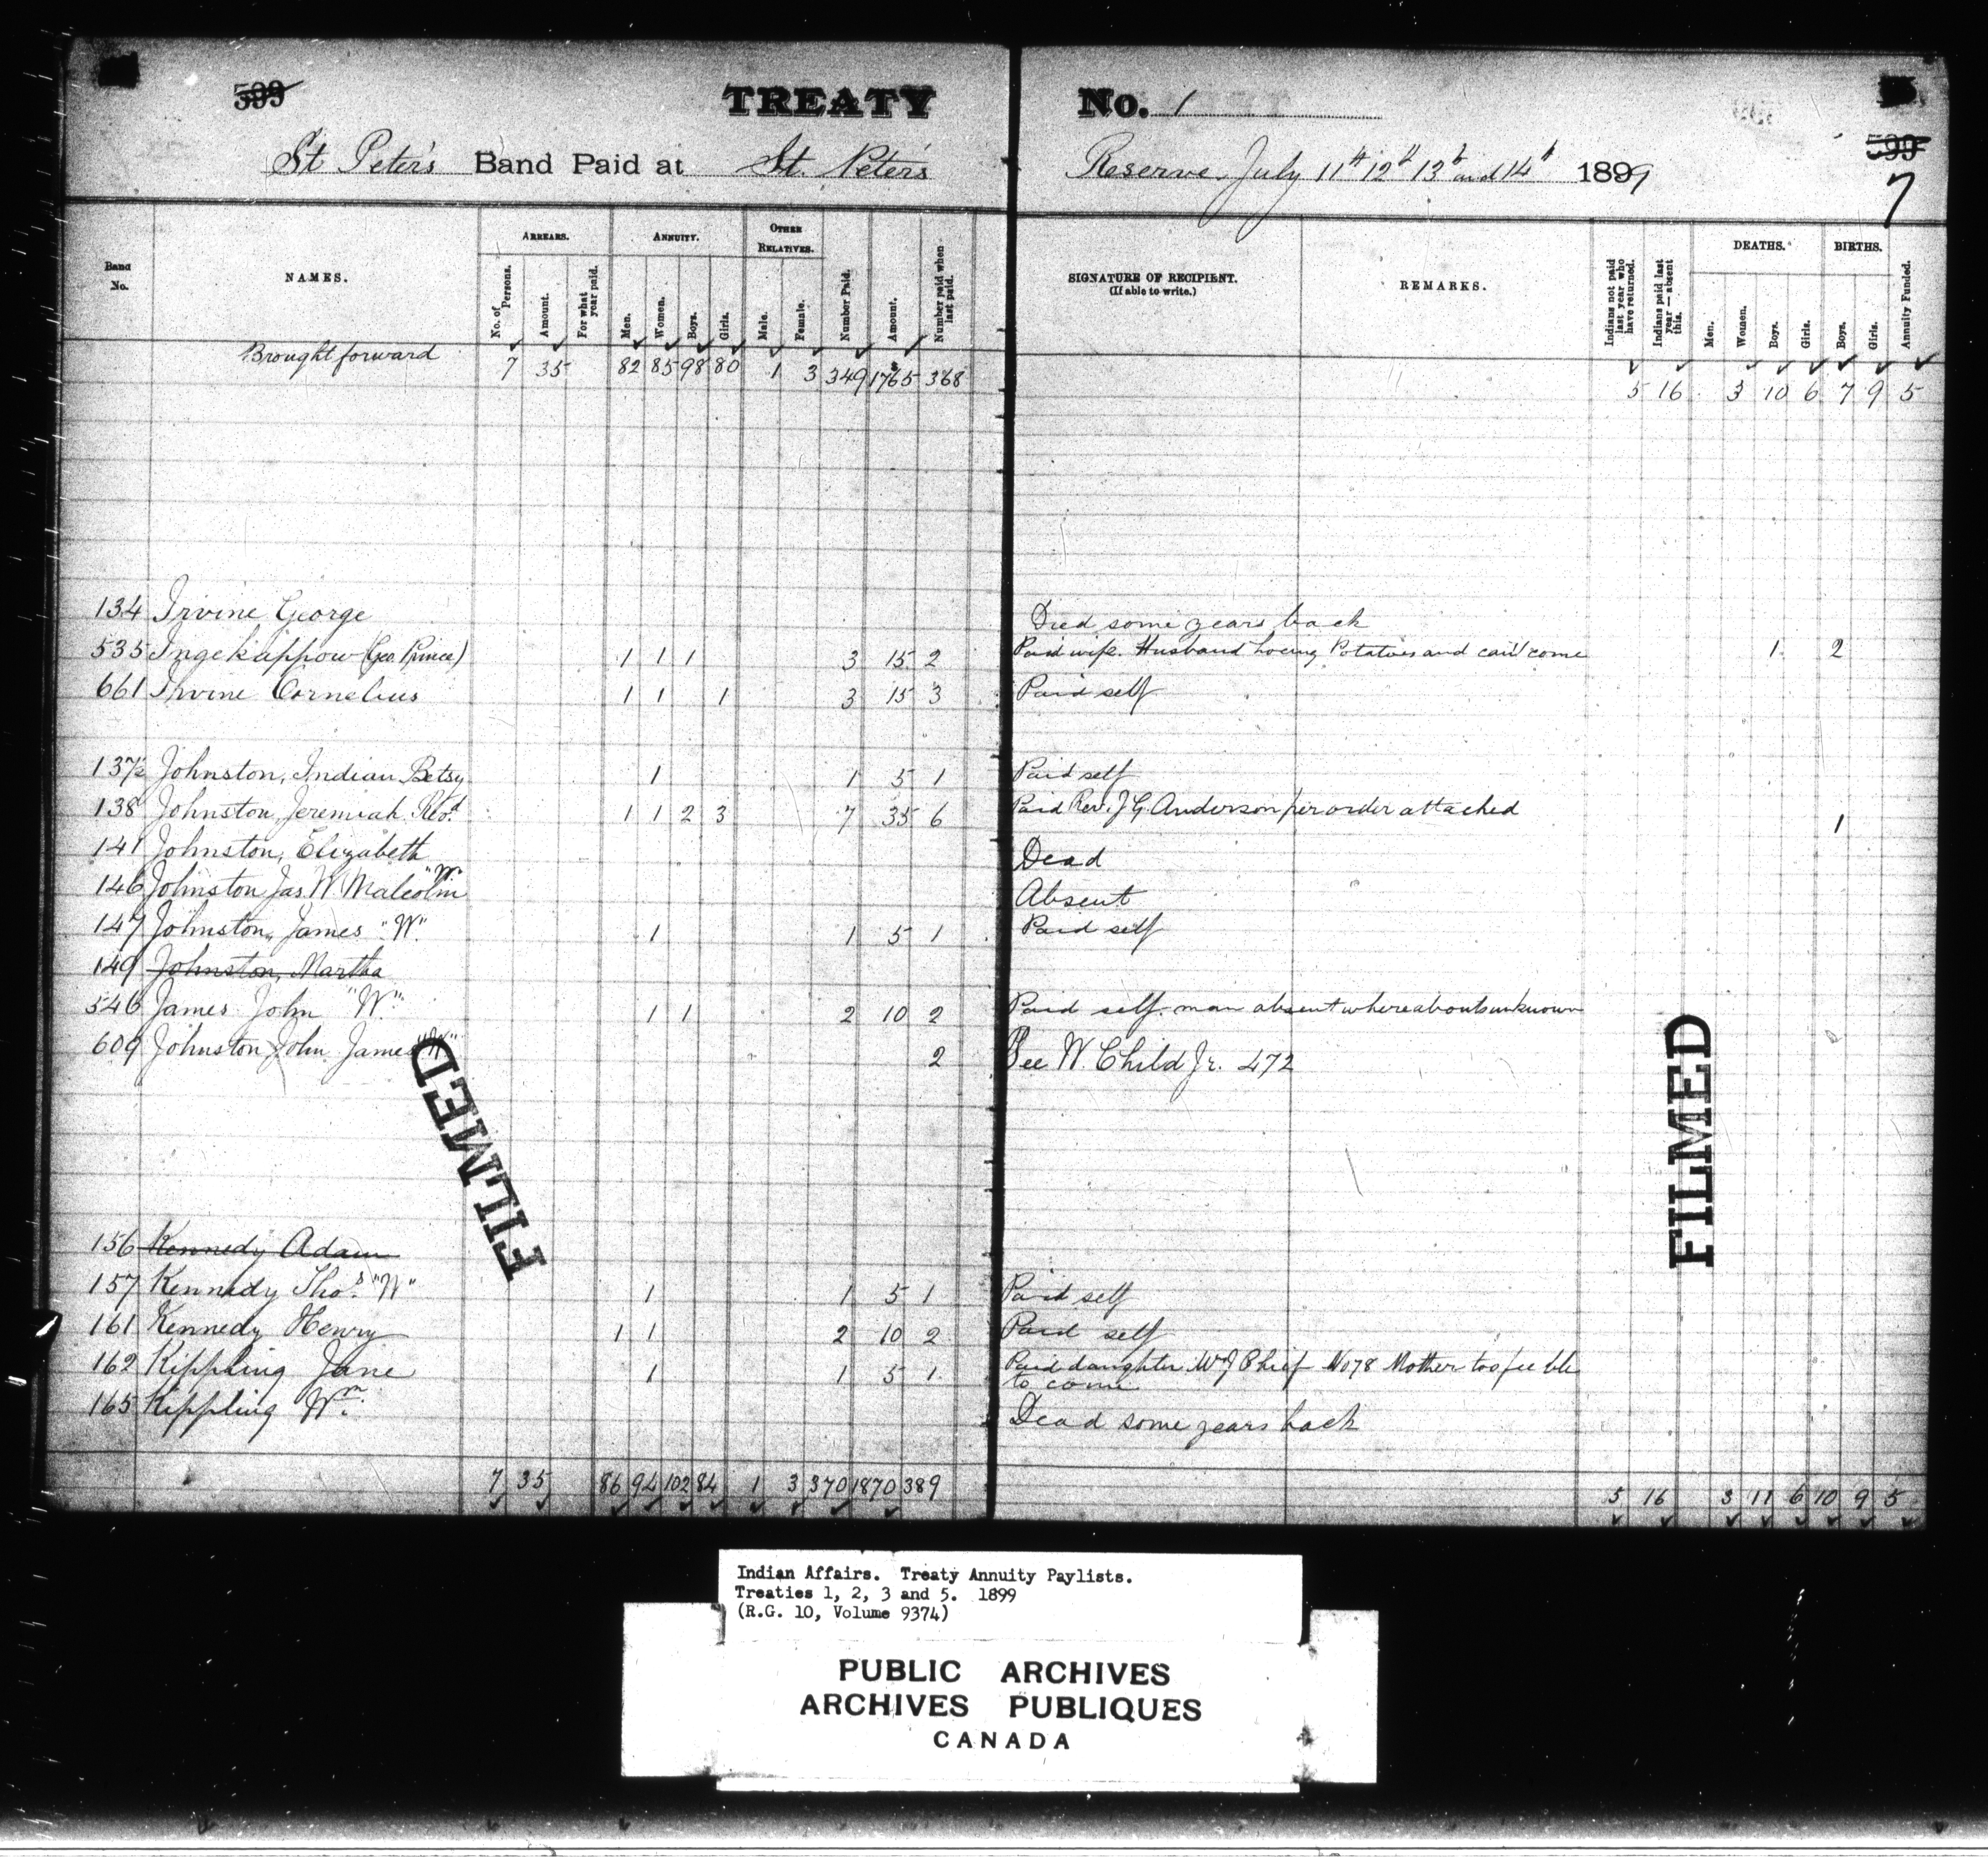 599 TREATY No. 1
599
St Peter's Band Paid at St. Peter's Reserve, July 11th 12th 13th and 14th 1899
7
Band No. NAMES. ARREARS. ANNUITY. OTHER RELATIVES. Number Paid. Amount. Number paid when last paid. SIGNATURE OF RECIPIENT. (If able to write.) REMARKS. Indians not paid last year who have returned. Indians paid last year — absent this. DEATHS. BIRTHS. Annuity Funded.
No. of Persons. Amount. For what year paid. Men. Women. Boys. Girls. Male. Female. Men. Women. Boys. Girls. Boys. Girls.
Brought forward 7 35 82 85 98 80 1 3 349 1765 368 5 16 3 10 6 7 9 5
134 Irvine George Died some years back
535 Ingekappow (Geo. Prince) 1 1 1 3 15 2 Paid wife. Husband hoeing Potatoes and can't come 1 2
661 Irvine Cornelius 1 1 1 3 15 3 Paid self
137½ Johnston, Indian Betsy 1 1 5 1 Paid self
138 Johnston, Jeremiah Red. 1 1 2 3 7 35 6 Paid Rev. J G. Anderson per order attached 1
141 Johnston, Elizabeth Dead
146 Johnston Jas. W. Malcolm "W" Absent
147 Johnston, James "W" 1 1 5 1 Paid self
149 Johnston, Martha
546 James John "W" 1 1 2 10 2 Paid self. man absent whereabouts unknown
609 Johnston John James "W" 2 See W. Child Jr. 472
FILMED
FILMED
156 Kennedy Adam
157 Kennedy Thos. "W" 1 1 5 1 Paid self
161 Kennedy Henry 1 1 2 10 2 Paid self
162 Kippling Jane 1 1 5 1 Paid daughter Chief No 78 Mother too feeble
to come
165 Kippling Wm. Dead some years back
7 35 86 94 102 84 1 3 370 1870 389 5 16 3 11 6 10 9 5
Indian Affairs. Treaty Annuity Paylists.
Treaties 1, 2, 3 and 5. 1899
(R.G. 10, Volume 9374)
PUBLIC ARCHIVES
ARCHIVES PUBLIQUES
CANADA